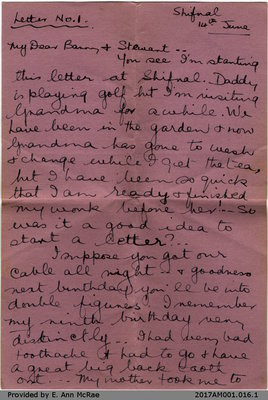 Letter No. 1.
Shifnal
14th June
My Dear Barry & Stewart --
You see I'm starting
this letter at Shifnal. Daddy
is playing golf but I'm visiting
Grandma for a while. We
have been in the garden & now
Grandma has gone to wash
& change while I get the tea,
but I have been so quick
that I am ready & finished
my work before her -- So
was it a good idea to
start a letter? --
I suppose you got our
cable all right & goodness
next birthday you'll be into
double figures! I remember
my ninth birthday very
distinctly -- I had very bad
toothache & had to go & have
a great big back tooth
out --- My mother took me to
Provided by E. Ann McRae
2017AM001.016.1